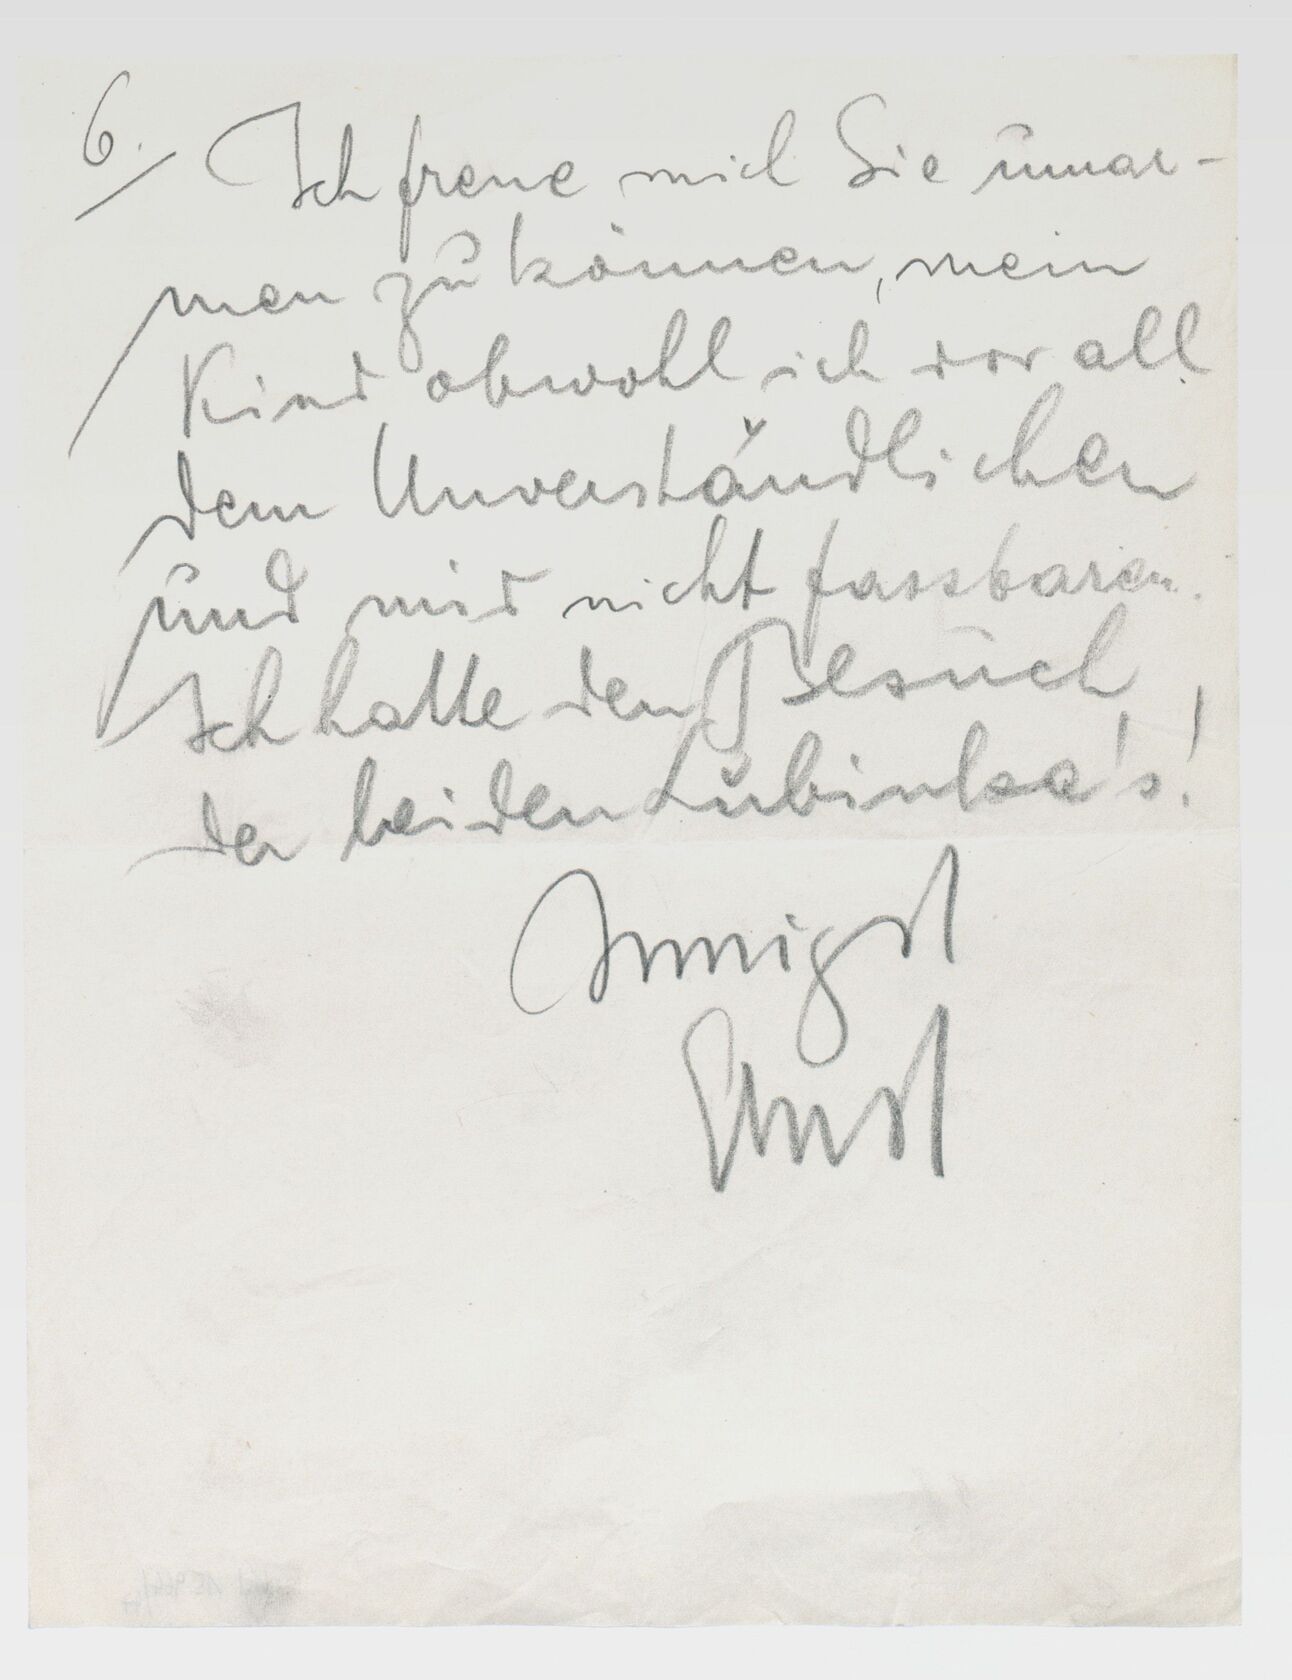 6. Ich freue mich Sie umar-
men zu können, mein
Kind obwohl ich vor all
dem Unverständlichen
und mir nicht fassbaren.
Ich hatte den Besuch
der beiden Lubinka's!
Innigst
Ernst